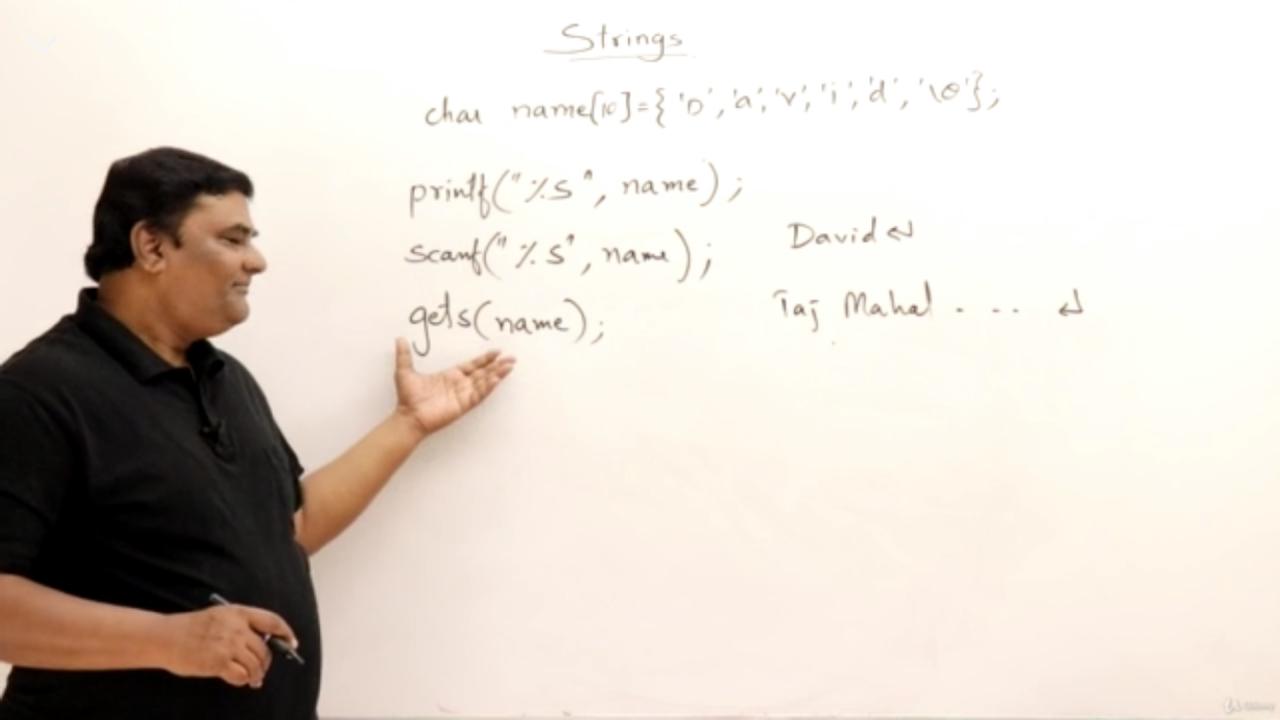 Strings
char name[10]={'D','a','v','i','d','\0'};
printf("%s", name);
scanf("%s", name);
David↵
gets(name);
Taj Mahal . . . ↵
Udemy